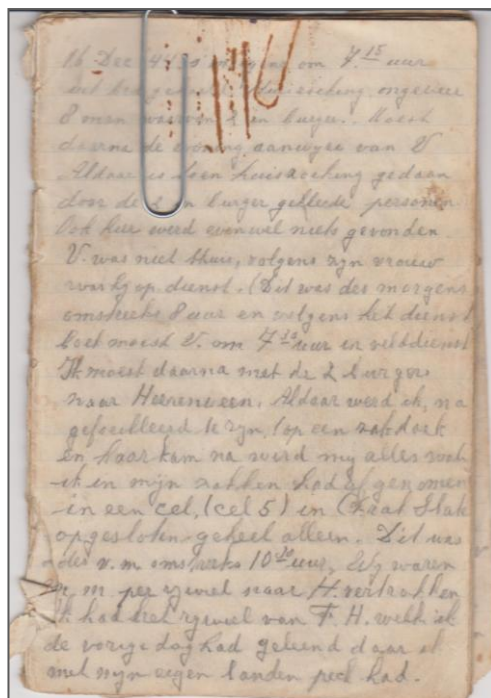 16 Dec 44 's morgens om 7.15 uur
huiszoeking ongeveer
8 man waarvan 2 in burger. Moest
daarna de woning aanwijzen van V.
Aldaar is toen huiszoeking gedaan
door de 2 in burger geklede personen
Ook hier werd evenwel niets gevonden.
V. was niet thuis, volgens zijn vrouw
was hij op dienst. (Dit was des morgens
omstreeks 8 uur en volgens het dienst
boek moest V. om 7 uur in velddienst
Ik moest daarna met de 2 burgers
naar Heerenveen. Aldaar werd ik, na
gefouilleerd te zijn, (op een zakdoek
en haarkam na werd mij alles wat
ik in mijn zakken had afgenomen
in een cel, (cel 5) in
opgesloten geheel alleen. Dit was
des v.m. omstreeks 10 uur. Wij waren
p.m. per rijwiel naar H. vertrokken
Ik had het rijwiel van F. H. welk ik
de vorige dag had geleend daar ik
met mijn eigen banden pech had.